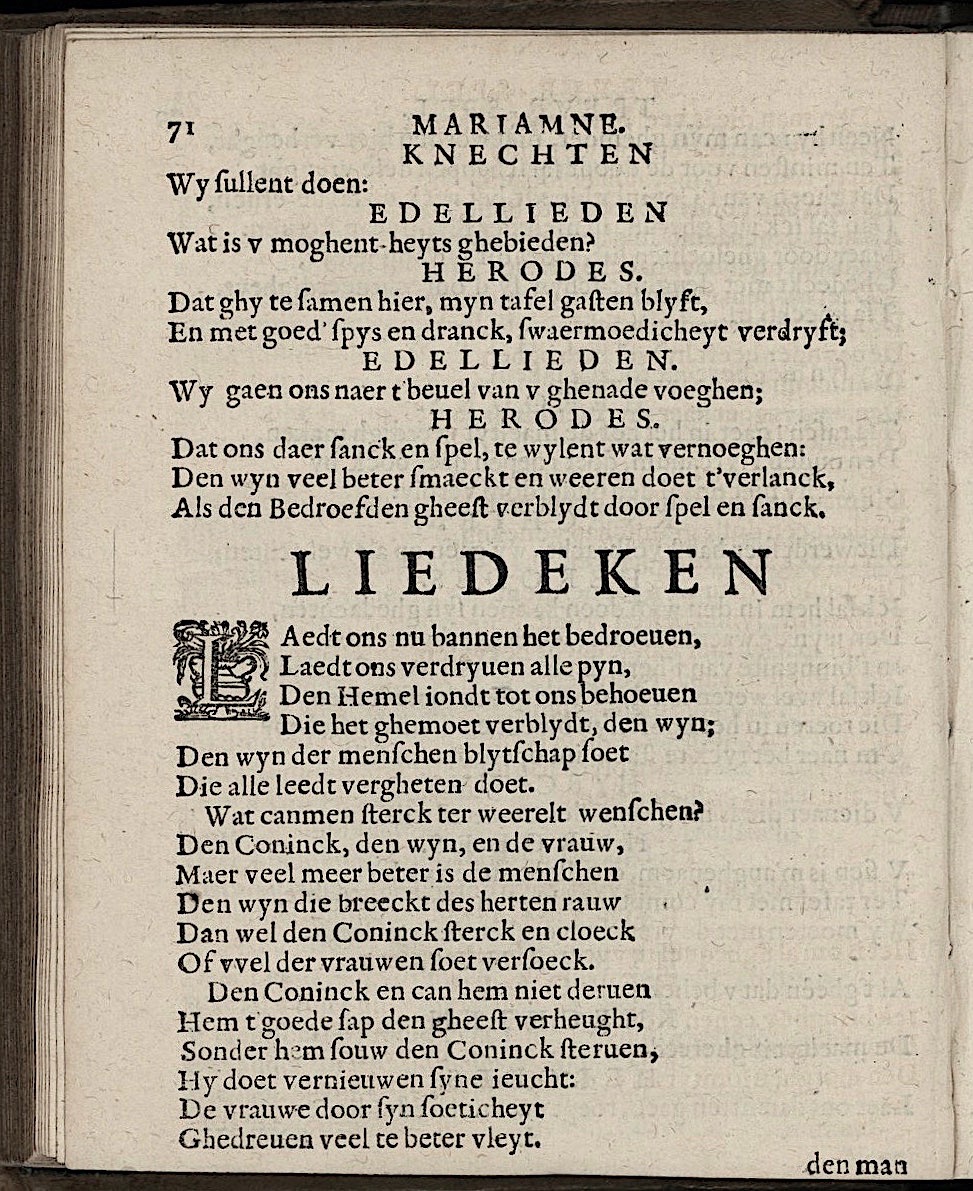 71 MARIAMNE.
KNECHTEN
Wy ſullent doen:
EDELLIEDEN
Wat is v moghent-heyts ghebieden?
HERODES.
Dat ghy te ſamen hier, myn tafel gaſten blyft,
En met goed' ſpys en dranck, ſwaermoedicheyt verdryft;
EDELLIEDEN.
Wy gaen ons naer t'beuel van v ghenade voeghen;
HERODES.
Dat ons daer ſanck en ſpel, te wylent wat vernoeghen:
Den wyn veel beter ſmaeckt en weeren doet t'verlanck,
Als den Bedroefden gheeſt verblydt door ſpel en ſanck.
LIEDEKEN
LAedt ons nu bannen het bedroeuen,
Laedt ons verdryuen alle pyn,
Den Hemel iondt tot ons behoeuen
Die het ghemoet verblydt, den wyn;
Den wyn der menſchen blytſchap ſoet
Die alle leedt vergheten doet.
Wat canmen ſterck ter weerelt wenſchen?
Den Coninck, den wyn, en de vrauw,
Maer veel meer beter is de menſchen
Den wyn die breeckt des herten rauw
Dan wel den Coninck ſterck en cloeck
Of vvel der vrauwen ſoet verſoeck.
Den Coninck en can hem niet deruen
Hem t'goede ſap den gheeſt verheught,
Sonder hem ſouw den Coninck ſteruen,
Hy doet vernieuwen ſyne ieucht:
De vrauwe door ſyn ſoeticheyt
Ghedreuen veel te beter vleyt.
den man